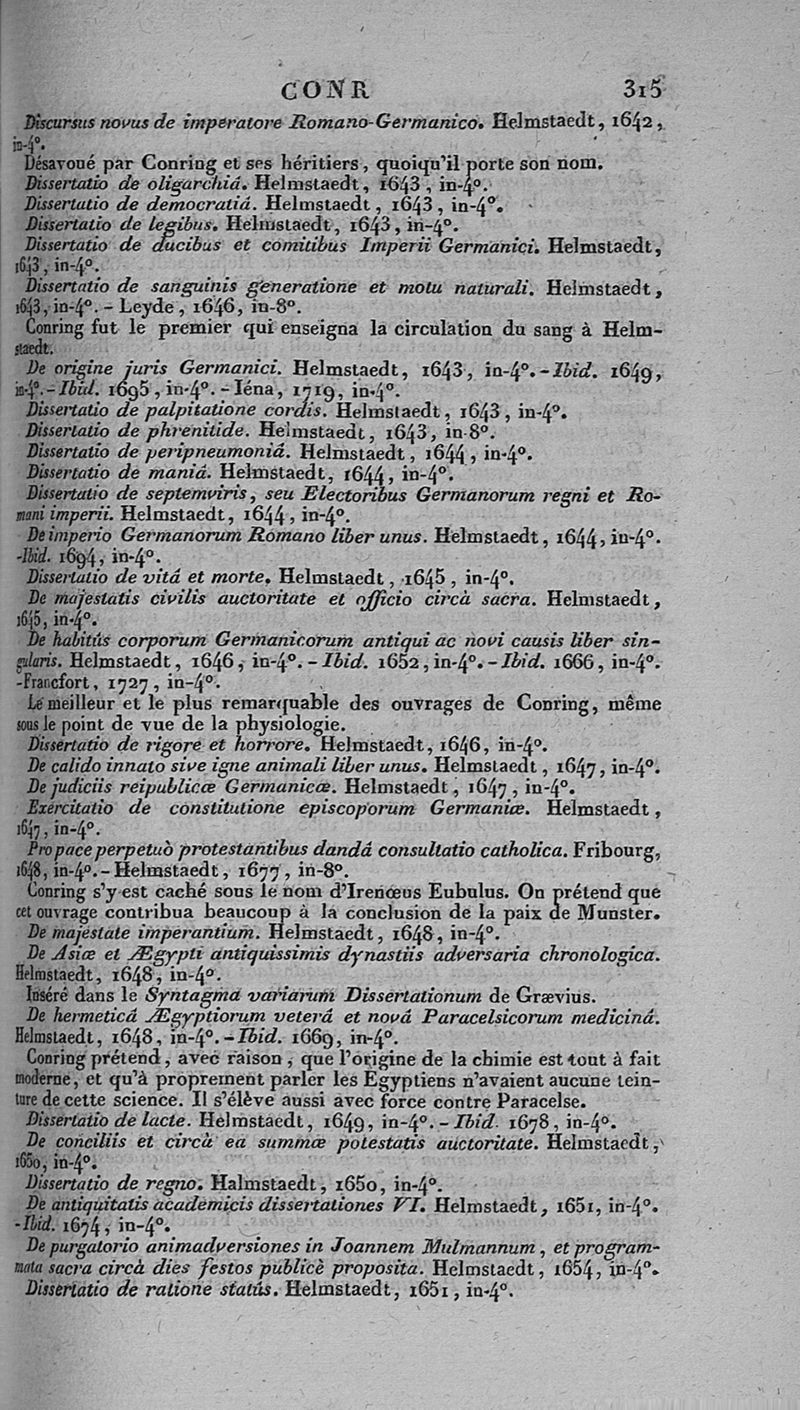 CONR 315
Discursus novus de imperatore Romano-Germanico. Helmstaedt, 1642,
in-4°.
Désavoué par Conring et ses héritiers, quoiqu'il porte son nom.
Dissertatio de oligarchiâ. Helmstaedt, 1643, in-4°.
Dissertatio de democratiâ. Helmstaedt, 1643, in-4°.
Dissertatio de legibus. Helmstaedt, 1643, in-4°.
Dissertatio de ducibus et comitibus Imperii Germanici. Helmstaedt,
1643, in-4°.
Dissertatio de sanguinis generatione et motu naturali. Helmstaedt,
1643, in-4°. - Leyde, 1646, in-8°.
Conring fut le premier qui enseigna la circulation du sang à Helm-
staedt.
De origine juris Germanici. Helmstaedt, 1643, in-4°. - Ibid. 1649,
in-4°. - Ibid. 1695, in-4°. - Iéna, 1719, in-4°.
Dissertatio de palpitatione cordis. Helmstaedt, 1643, in-4°.
Dissertatio de phrenitide. Helmstaedt, 1643, in-8°.
Dissertatio de peripneumoniâ. Helmstaedt, 1644, in-4°.
Dissertatio de maniâ. Helmstaedt, 1644, in-4°.
Dissertatio de septemviris, seu Electoribus Germanorum regni et Ro-
mani imperii. Helmstaedt, 1644, in-4°.
De imperio Germanorum Romano liber unus. Helmstaedt, 1644, in-4°.
-Ibid. 1694, in-4°.
Dissertatio de vitâ et morte. Helmstaedt, 1645, in-4°.
De majestatis civilis auctoritate et officio circà sacra. Helmstaedt,
1645, in-4°.
De habitûs corporum Germanicorum antiqui ac novi causis liber sin-
gularis. Helmstaedt, 1646, in-4°. - Ibid. 1652, in-4°. - Ibid. 1666, in-4°.
-Francfort, 1727, in-4°.
Le meilleur et le plus remarquable des ouvrages de Conring, même
sous le point de vue de la physiologie.
Dissertatio de rigore et horrore. Helmstaedt, 1646, in-4°.
De calido innato sive igne animali liber unus. Helmstaedt, 1647, in-4°.
De judiciis reipublicæ Germanicæ. Helmstaedt, 1647, in-4°.
Exercitatio de constitutione episcoporum Germaniæ. Helmstaedt,
1647, in-4°.
Pro pace perpetuò protestantibus dandâ consultatio catholica. Fribourg,
1648, in-4°. - Helmstaedt, 1677, in-8°.
Conring s'y est caché sous le nom d'Irenœus Eubulus. On prétend que
cet ouvrage contribua beaucoup à la conclusion de la paix de Munster.
De majestate imperantium. Helmstaedt, 1648, in-4°.
De Asiæ et Ægypti antiquissimis dynastiis adversaria chronologica.
Helmstaedt, 1648, in-4°.
Inséré dans le Syntagma variarum Dissertationum de Grævius.
De hermeticâ Ægyptiorum veterâ et novâ Paracelsicorum medicinâ.
Helmstaedt, 1648, in-4°. - Ibid. 1669, in-4°.
Conring prétend, avec raison, que l'origine de la chimie est tout à fait
moderne, et qu'à proprement parler les Égyptiens n'avaient aucune tein-
ture de cette science. Il s'élève aussi avec force contre Paracelse.
Dissertatio de lacte. Helmstaedt, 1649, in-4°. - Ibid. 1678, in-4°.
De conciliis et circà ea summæ potestatis auctoritate. Helmstaedt,
1650, in-4°.
Dissertatio de regno. Halmstaedt, 1650, in-4°.
De antiquitatis academicis dissertationes VI. Helmstaedt, 1651, in-4°.
-Ibid. 1674, in-4°.
De purgatorio animadversiones in Joannem Mulmannum, et program-
mata sacra circà dies festos publicè proposita. Helmstaedt, 1654, in-4°.
Dissertatio de ratione statûs. Helmstaedt, 1651, in-4°.